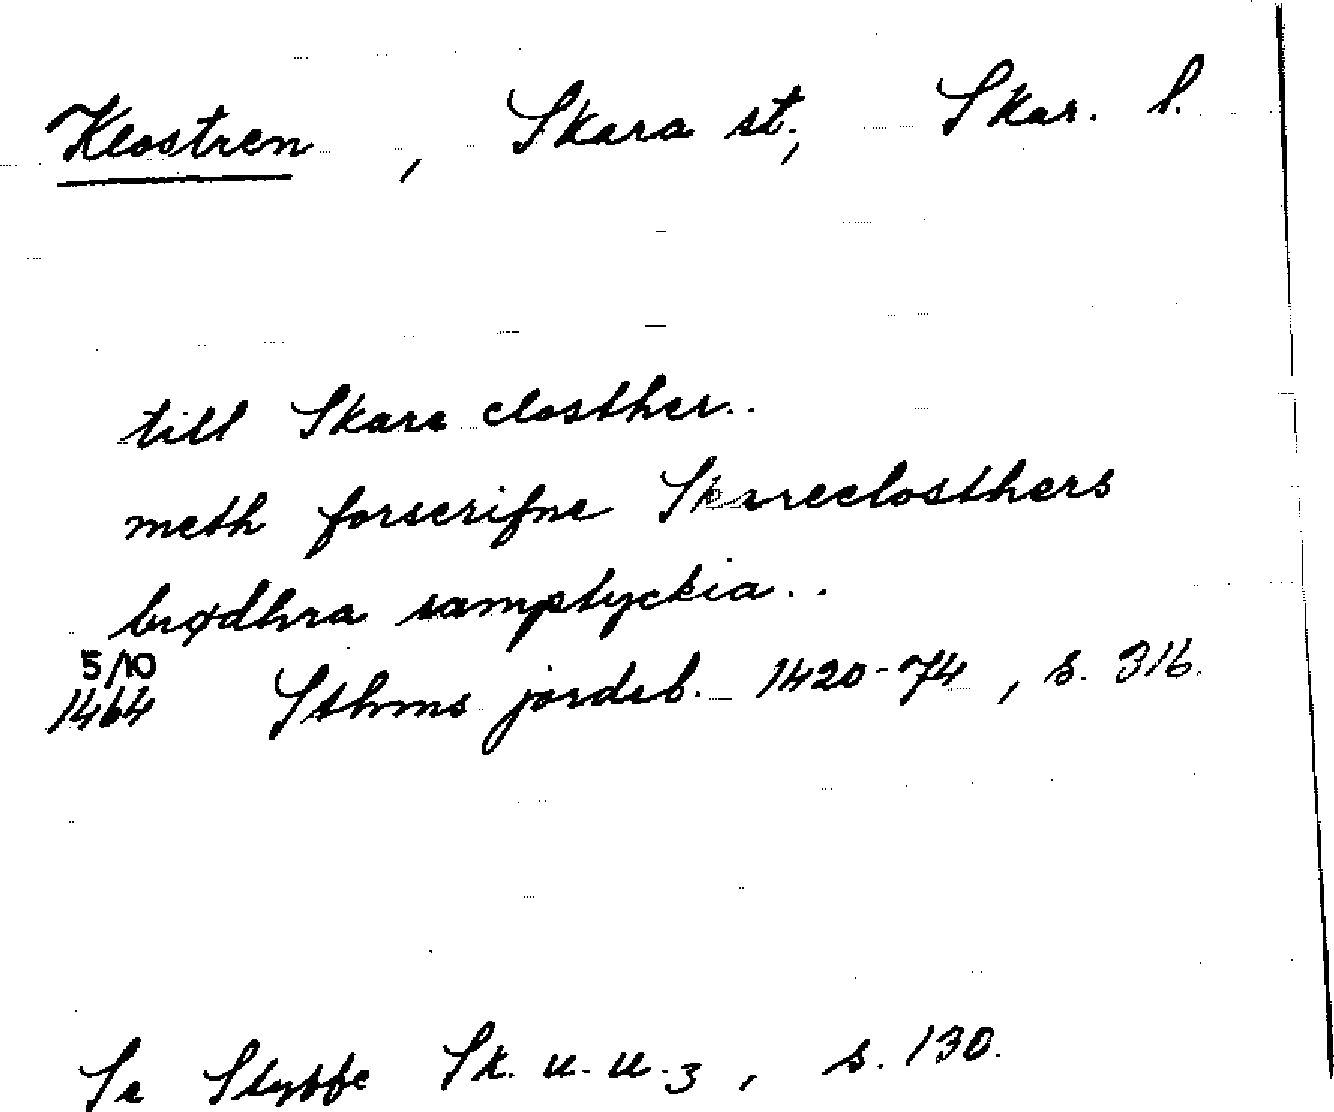 Klostren , Skara st., Skar. l.
till Skara closther..
meth forscrifne Skareclosthers
brødhra samptyckia..
5/10
1464 Sthms jordeb. 1420-74, s. 316.
Se Styffe Sk. u. u. 3, s. 130.